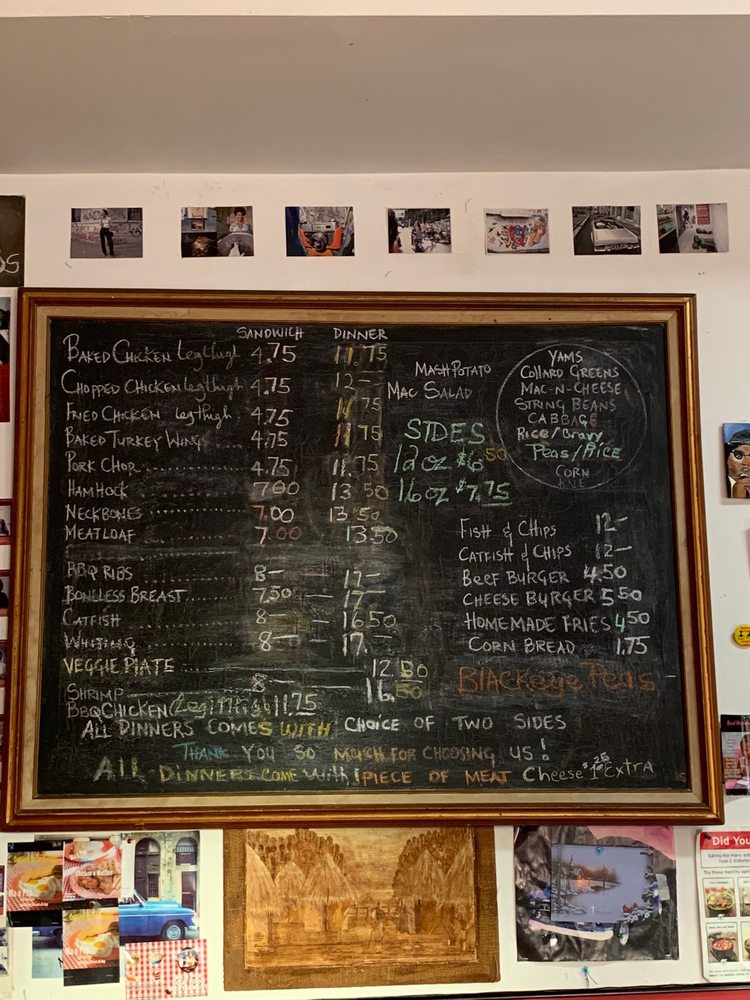 SANDWICH DINNER
BAKED CHICKEN Leg thigh 4.75 11.75
CHOPPED CHICKEN leg thigh 4.75 12-
FRIED CHICKEN Leg thigh 4.75 11.75
BAKED TURKEY WING 4.75 11.75
PORK CHOP 4.75 11.75
HAM HOCK 7.00 13.50
NECKBONES 7.00 13.50
MEATLOAF 7.00 13.50
BBQ RIBS 8- 17-
BONELESS BREAST 7.50 17-
CATFISH 8- 16.50
WHITING 8- 17.-
VEGGIE PLATE 12.50
SHRIMP 8 16.50
BBQ CHICKEN (Leg/Thigh) 11.75
MASH POTATO
MAC SALAD
SIDES
12 oz $6.50
16 oz $7.75
YAMS
COLLARD GREENS
MAC-N-CHEESE
STRING BEANS
CABBAGE
Rice/Gravy
PEAS/RICE
CORN
FISH & CHIPS 12-
CATFISH & CHIPS 12-
BEEF BURGER 4.50
CHEESE BURGER 5.50
HOMEMADE FRIES 4.50
CORN BREAD 1.75
BLACKeye Peas
ALL DINNERS COMES WITH CHOICE OF TWO SIDES
THANK YOU SO MUCH FOR CHOOSING US!
ALL DINNERS COME With 1 PIECE OF MEAT Cheese $1.25 Extra
Did You